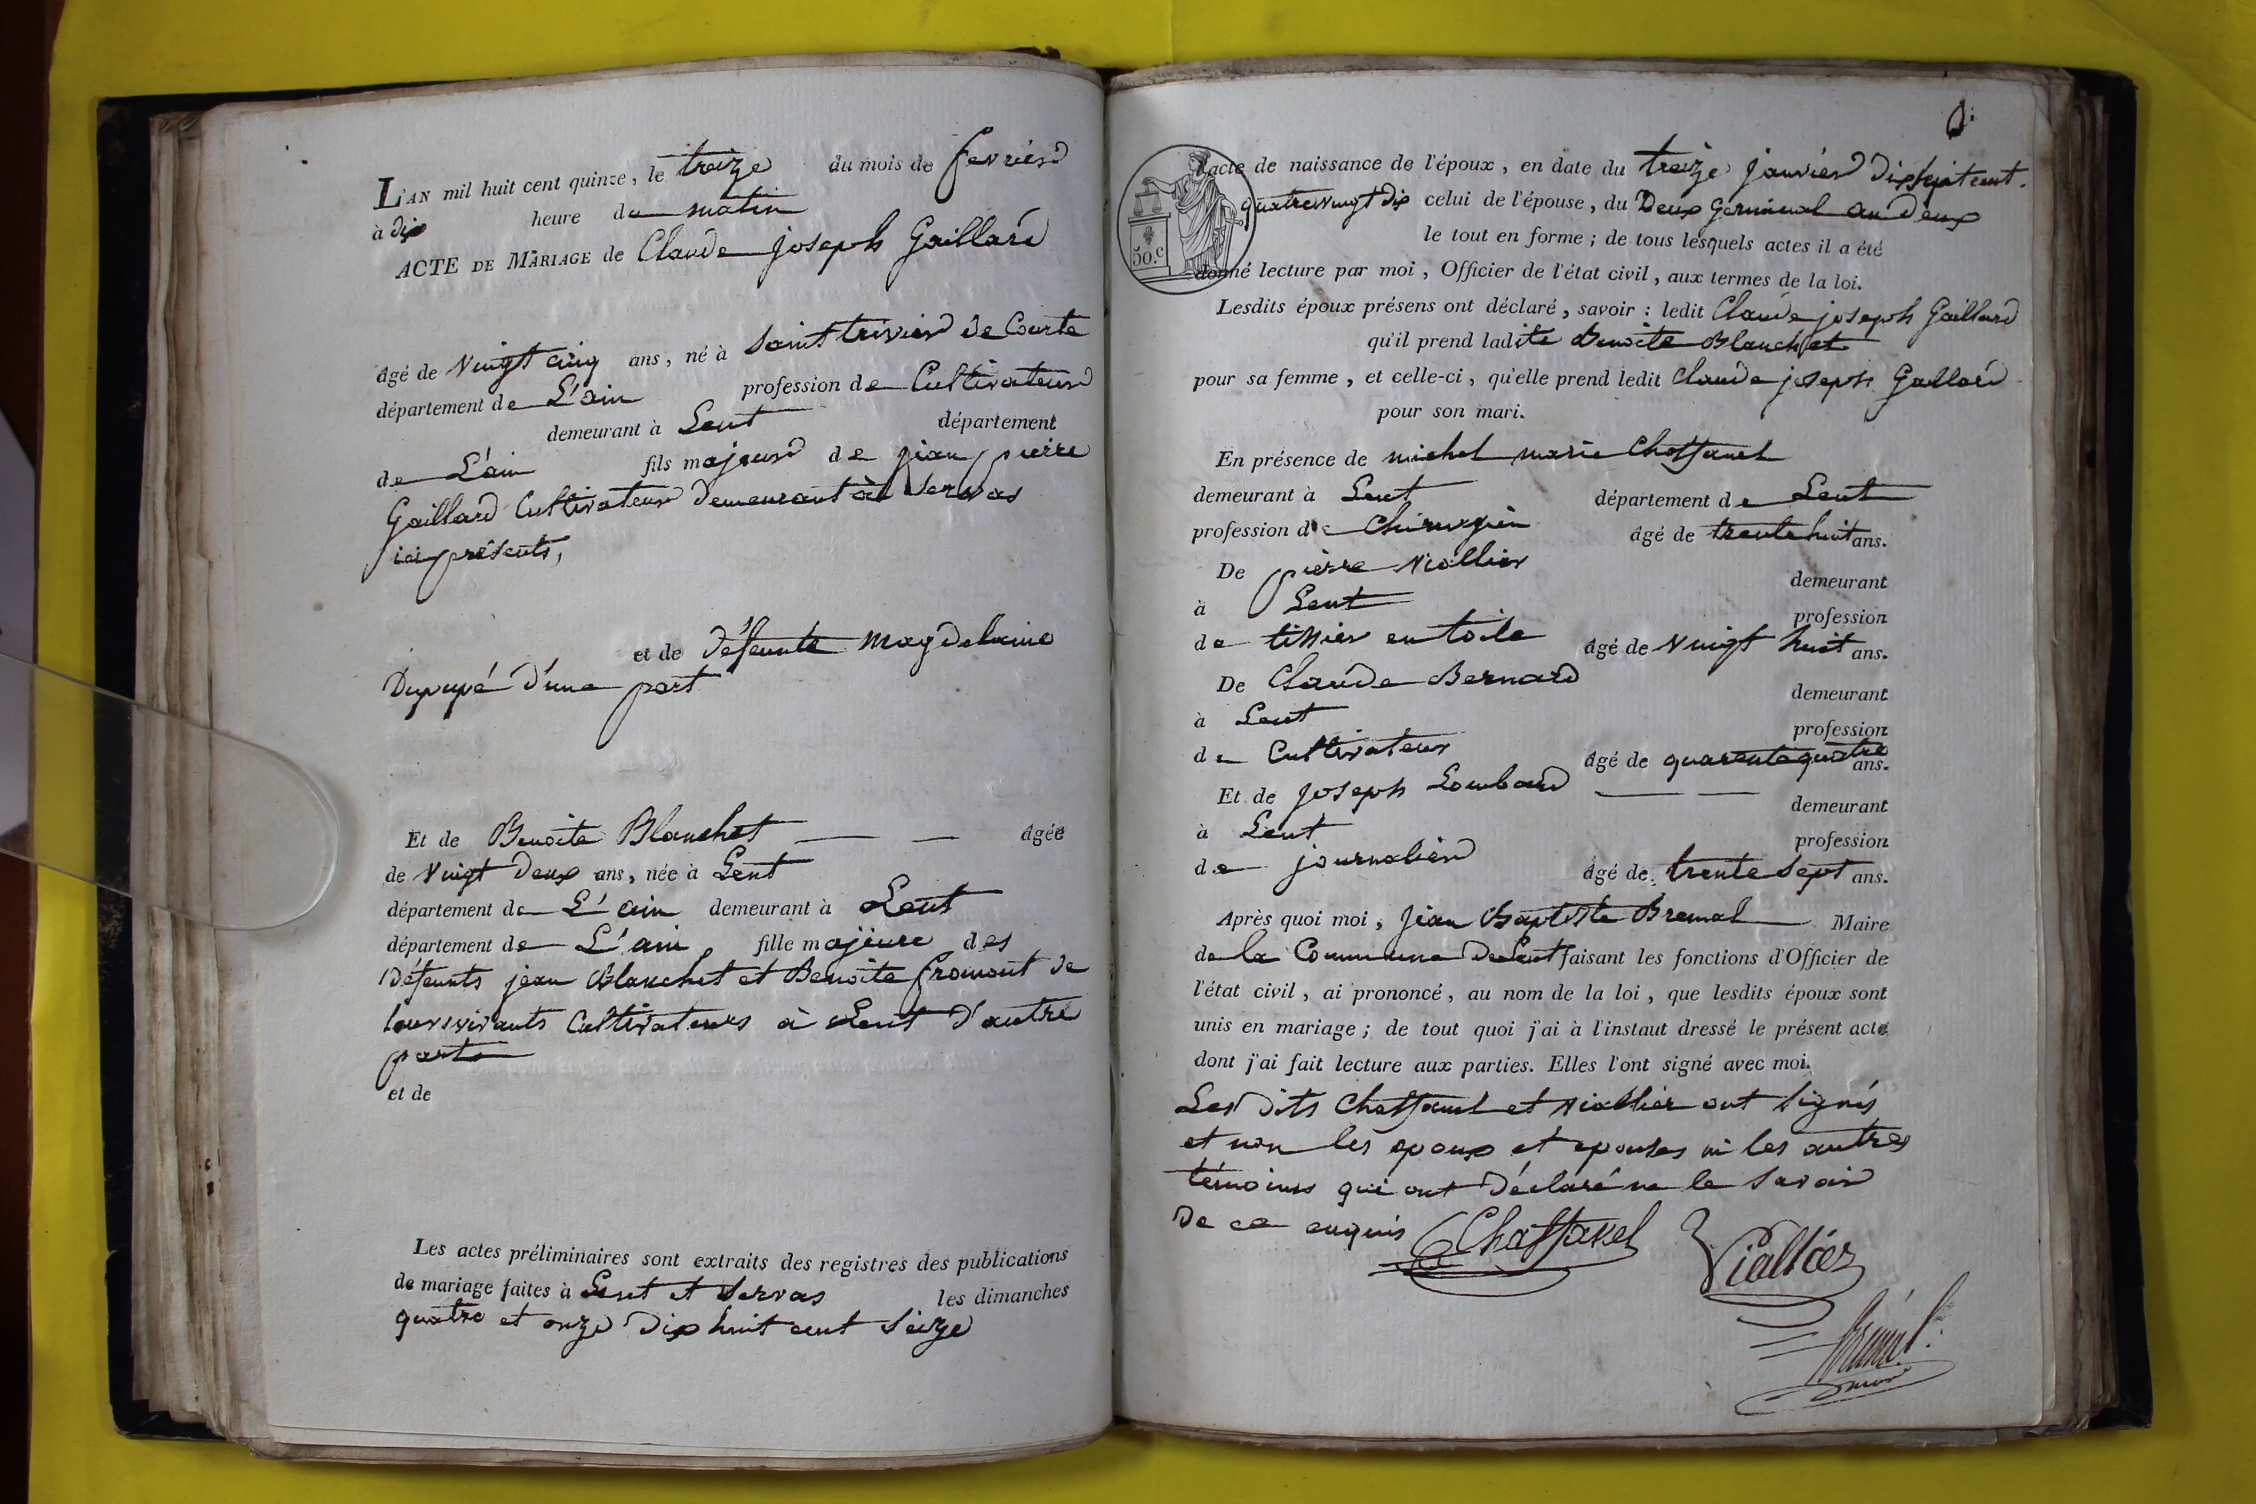 L'AN mil huit cent quinze, le treize du mois de fevrier
à dix heure du matin
ACTE DE MARIAGE de Claude joseph Gaillard
âgé de vingt cinq ans, né à saint trivier de Courte
département de L'ain profession de Cultivateur
demeurant à Lent département
de L'ain fils majeur de jean pierre
Gaillard Cultivateur demeurant à Servas
ici présents,
et de défeunte magdelaine
Dupupé d'une part
Et de Benoite Blanchet âgée
de vingt deux ans, née à Lent
département de L'ain demeurant à Lent
département de L'ain fille majeure des
défeunts jean Blanchet et Benoite fromont de
leurs vivants Cultivateurs à Lent d'autre
part
et de
Les actes préliminaires sont extraits des registres des publications
de mariage faites à Lent et Servas les dimanches
quatre et onze dix huit cent seize
l'acte de naissance de l'époux, en date du treize janvier dix sept cent
quatre vingt dix celui de l'épouse, du Deux germinal an deux
le tout en forme; de tous lesquels actes il a été
50.c
donné lecture par moi, Officier de l'état civil, aux termes de la loi.
Lesdits époux présens ont déclaré, savoir: ledit Claude joseph Gaillard
qu'il prend ladite Benoite Blanchet
pour sa femme, et celle-ci, qu'elle prend ledit Claude joseph Gallard
pour son mari.
En présence de michel marie Chossanel
demeurant à Lent département de Lent
profession de Chirurgien âgé de trente huit ans.
De pierre Viallier
demeurant
à Lent
profession
de tissier en toile âgé de vingt huit ans.
De Claude Bernard
demeurant
à Lent
profession
de Cultivateur âgé de quarente quatre ans.
Et de joseph Lombard
demeurant
à Lent
profession
de journalier âgé de trente sept ans.
Après quoi moi, jean Baptiste Maire
de la Commune de Lent faisant les fonctions d'Officier de
l'état civil, ai prononcé, au nom de la loi, que lesdits époux sont
unis en mariage; de tout quoi j'ai à l'instant dressé le présent acte
dont j'ai fait lecture aux parties. Elles l'ont signé avec moi.
Les dits Chossanel et Viallier ont signés
et non les epoux et epouses ni les autres
témoins qui ont déclaré ne le savoir
de ce enquis Chossanel Viallier